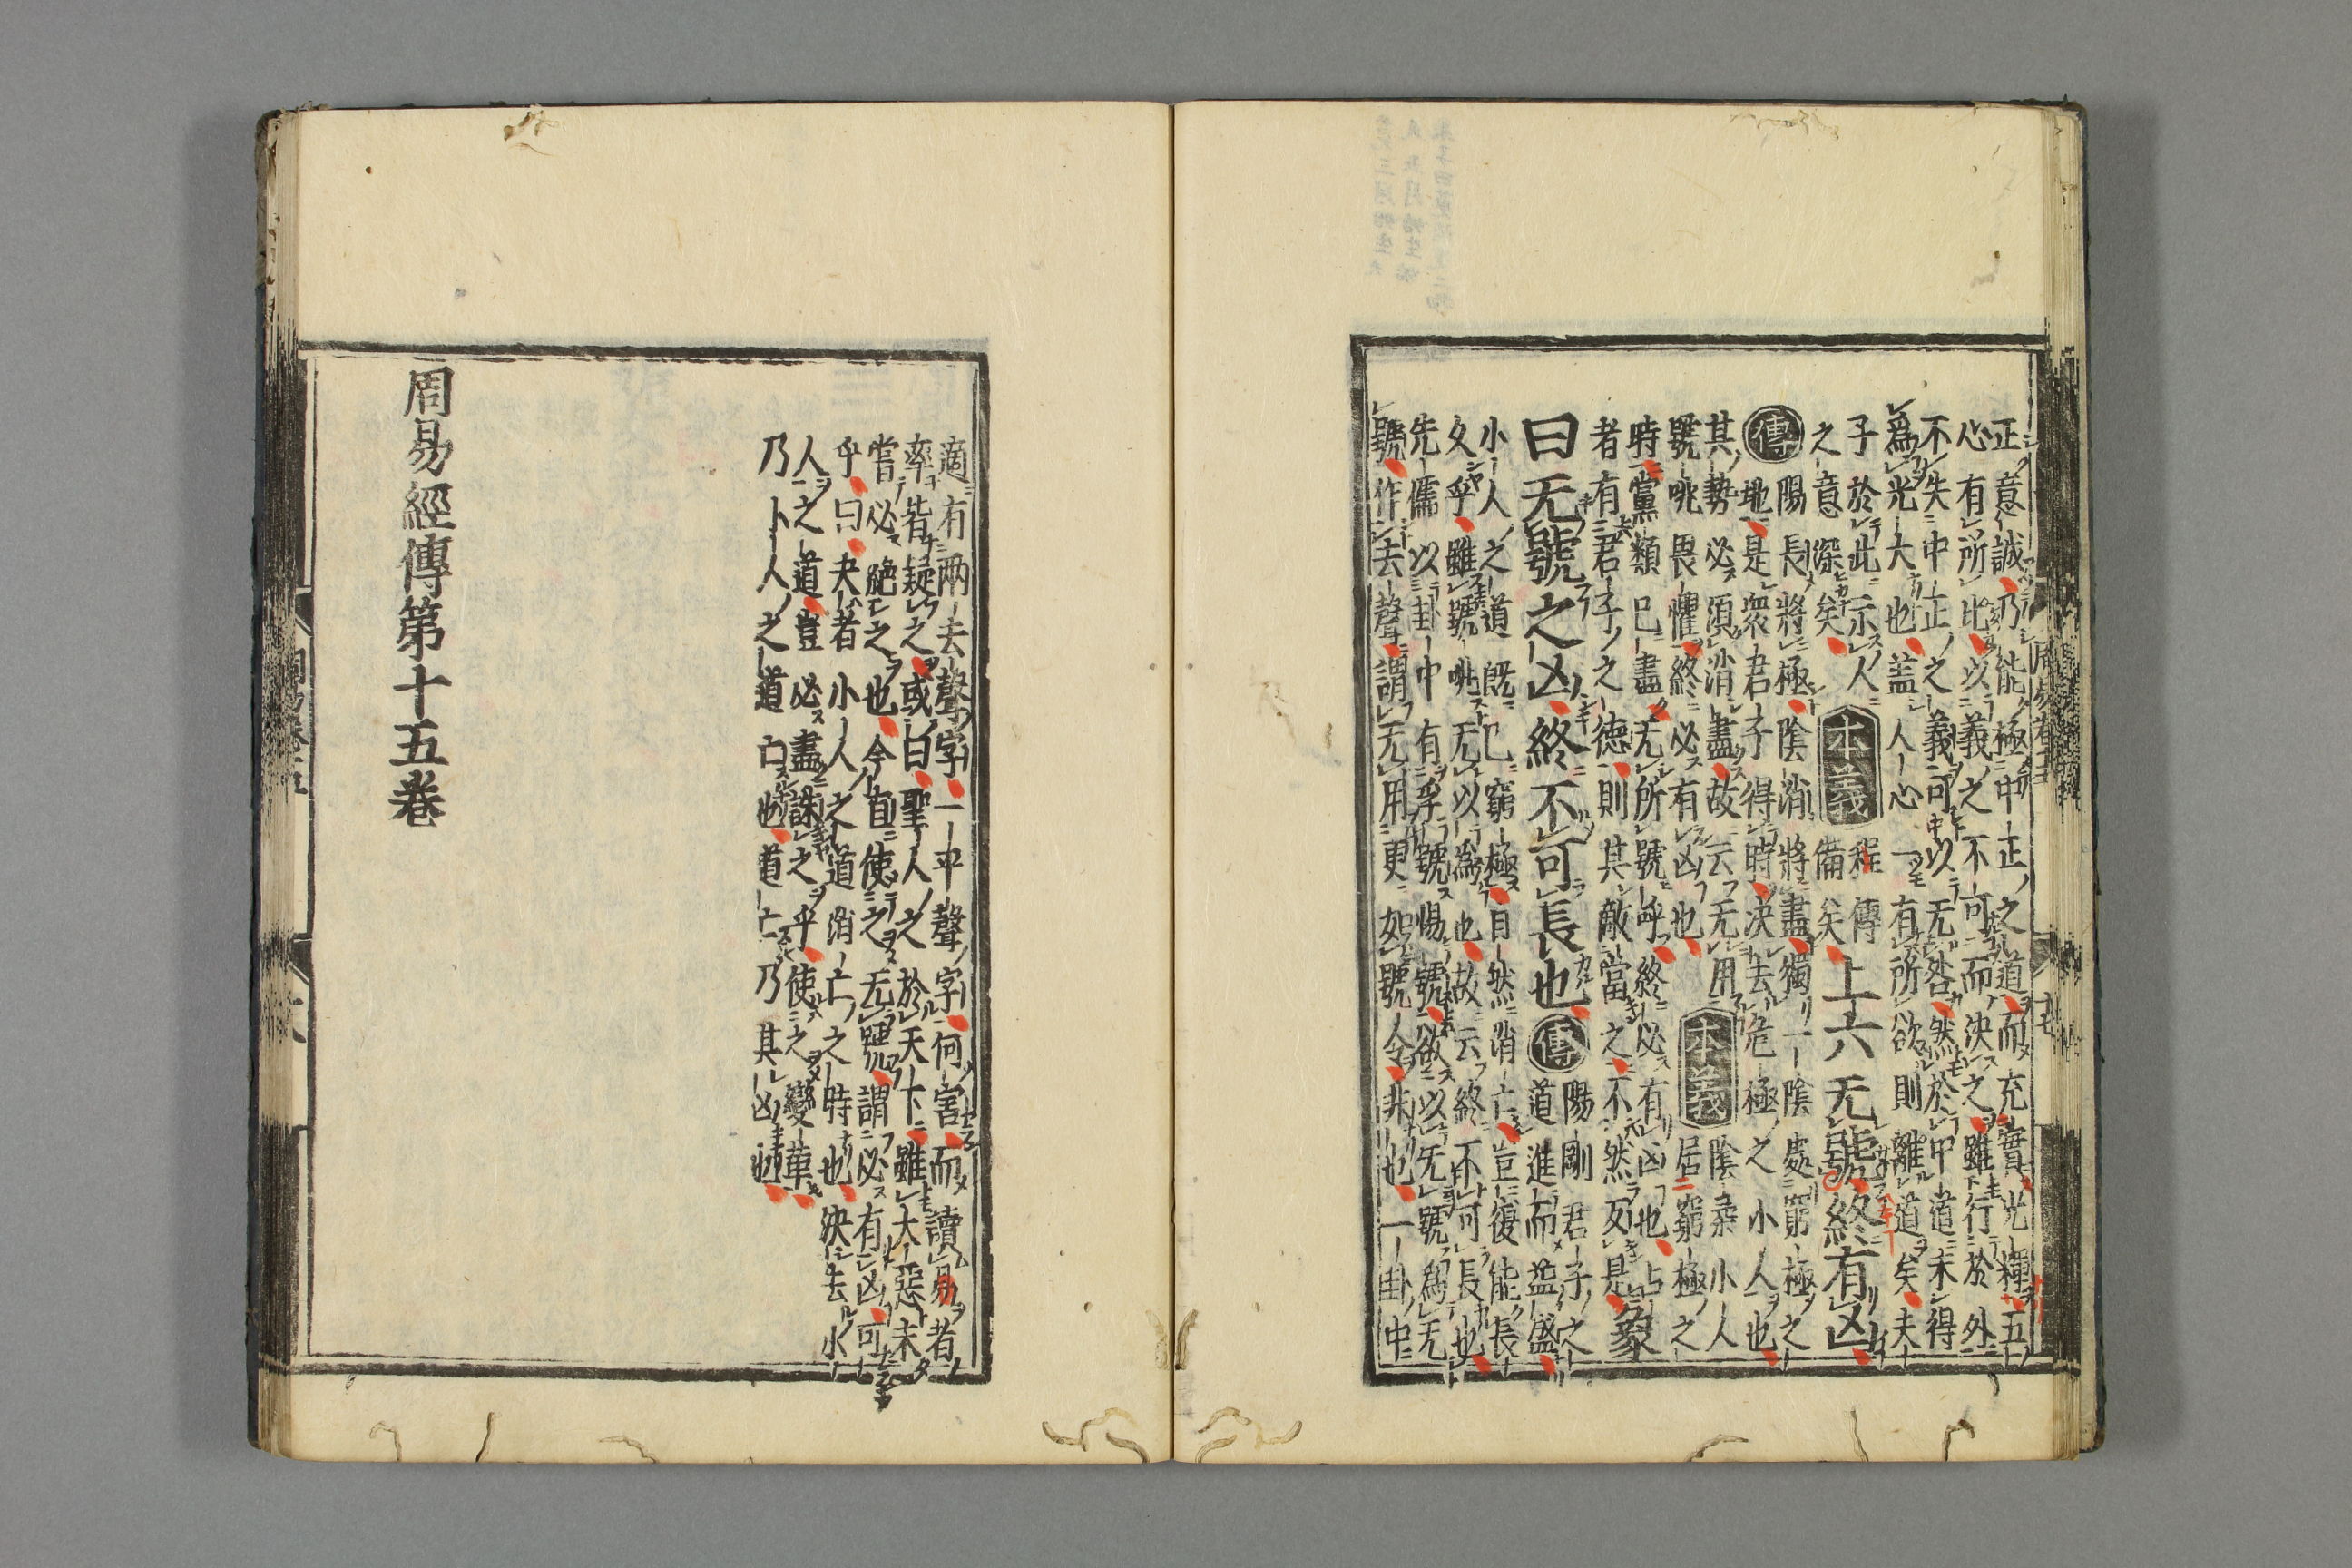 正意誠乃能極中正之道而充實光輝五
心有所比以義之不可而決之雖行於外
不失中正之義可以无咎然於中道未得
爲光大也蓋人心一有所欲則離道矣夫
子於此示人
之意深矣
本義
程傳
備矣
上六无號終有凶
傳
陽長將極陰消將盡獨一陰處窮極之
地是衆君子得時決去危極之小人也
其勢必須消盡故云无用
號咷畏懼終必有凶也
本義
陰柔小人
居窮極之
時黨類已盡无所號呼終必有凶也占
者有君子之德則其敵當之不然反是
象
曰无號之凶終不可長也
傳
陽剛君子之
道進而益盛
小人之道既已窮極自然消亡豈復能長
久乎雖號咷无以爲也故云終不可長也
先儒以卦中有孚號惕號欲以无號爲无
號作去聲謂无用更加號令非也一卦中
適有兩去聲字一平聲字何害而讀易者
率皆疑之或曰聖人之於天下雖大惡未
嘗必絕之也今直使之无號謂必有凶可
乎曰夬者小人之道消亡之時也決去小
人之道豈必盡誅之乎使之變革
乃小人之道亡也道亡乃其凶也
周易經傳第十五卷